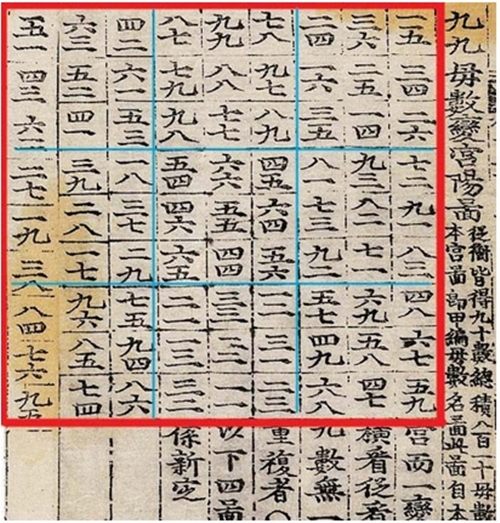 九九母數變宮陽圖
從衡皆得九十數總積八百一十母數
本宮圖卽甲編母數名圖此圖自本
一五三四二六七二九一八三四八六七五九宮而一變
三六二五一四九三八二七一六九五八四七橫看從看
二四一六三五八一七三九二五七四九六八九數無一
七八九七八九四五六四五六一二三一二三重複者○
九九八八七七六六五五四四三三二二一一以下四圖
八七七九九八五四四六六五二一一三三二係新定
四二六一五三一八三七二九七五九四八六
六三五二四一三九二八一七九六八五七四
五一四三六二二七一九三八八四七六九五